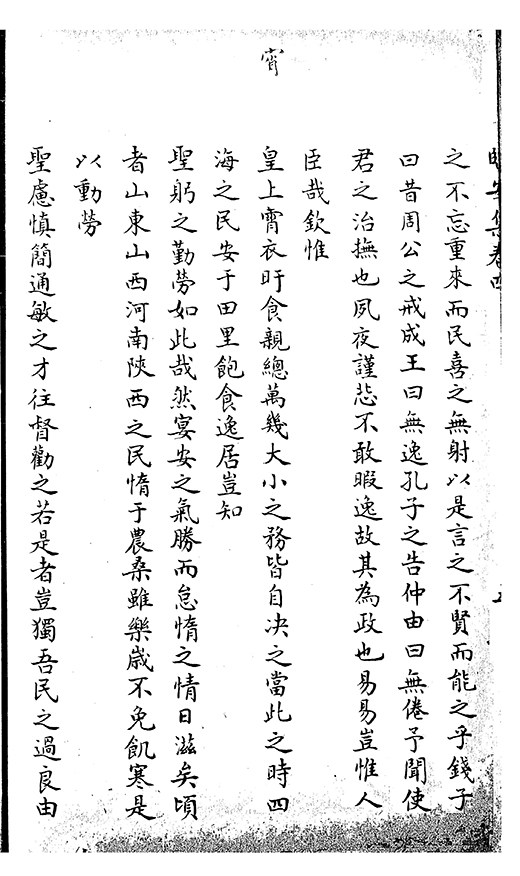 之不忘重來而民喜之無射以是言之不賢而能之乎錢子
曰昔周公之戒成王曰無逸孔子之告仲由曰無倦予聞使
君之治撫也夙夜謹恐不敢暇逸故其為政也易易豈惟人
臣哉欽惟
皇上宵衣旰食親總萬幾大小之務皆自决之當此之時四
海之民安于田里飽食逸居豈知
聖躬之勤勞如此哉然宴安之氣勝而怠惰之情日滋矣頃
者山東山西河南陝西之民惰于農桑雖樂歲不免飢寒是
以動勞
聖慮慎簡通敏之才往督勸之若是者豈獨吾民之過良由
宵